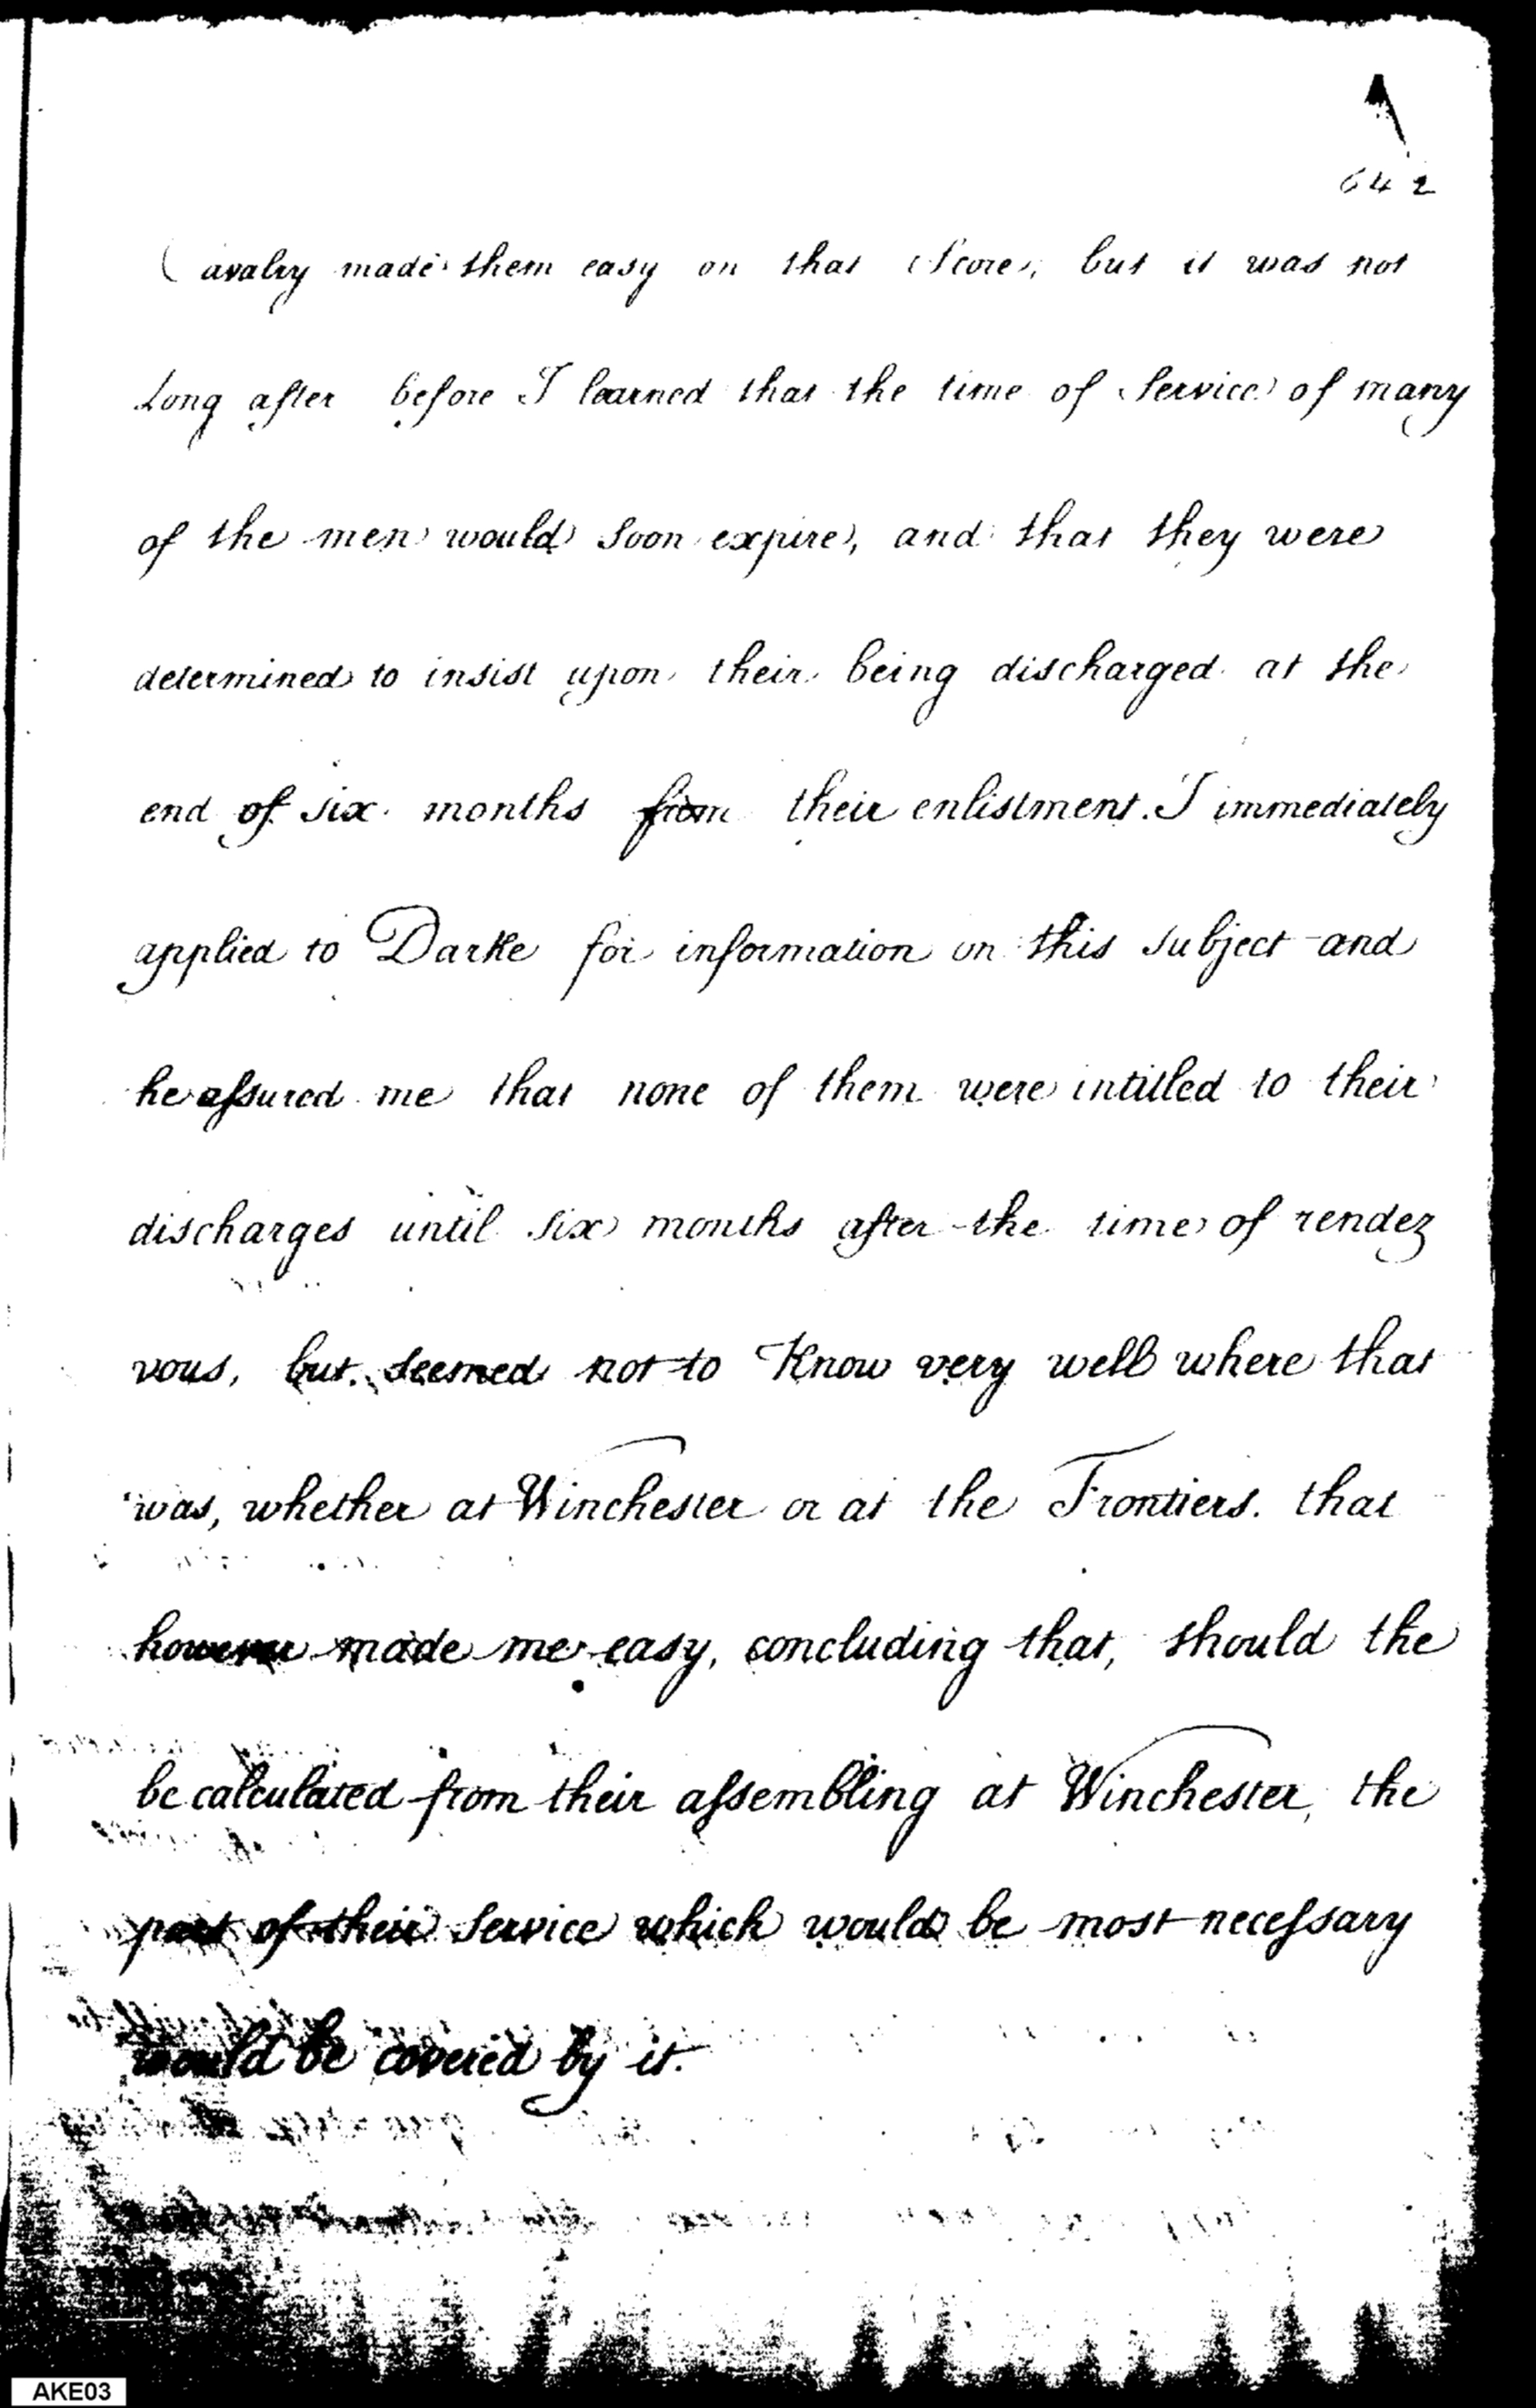 642
Cavalry made them easy on that Score, but it was not
Long after before I learned that the time of Service of many
of the men would soon expire, and that they were
determined to insist upon their being discharged at the
end of six months from their enlistment. I immediately
applied to Darke for information on this subject and
he assured me that none of them were intitled to their
discharges until six months after the time of rendez
vous, but seemed not to Know very well where that
was, whether at Winchester or at the Frontiers. that
however made me easy, concluding that, should the
be calculated from their assembling at Winchester, the
part of their Service which would be most necessary
would be covered by it.
AKE03